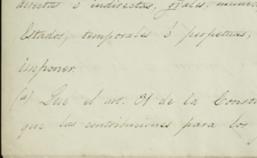 directas ó indirectas, g/ales, munici
Estados, temporales ó perpetuas,
imponer.
(a) Que el art. 31 de la Const
que las contribuciones para los